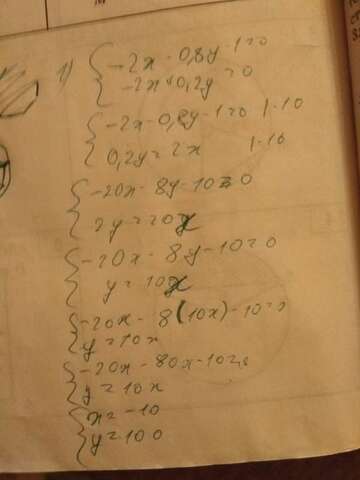 1) { -2x - 0,8y - 1 = 0
-2x + 0,2y = 0
{ -2x - 0,8y - 1 = 0 | · 10
0,2y = 2x | · 10
{ -20x - 8y - 10 = 0
2y = 20x
{ -20x - 8y - 10 = 0
y = 10x
{ -20x - 8(10x) - 10 = 0
y = 10x
{ -20x - 80x - 10 = 0
y = 10x
{ x = -10
y = 100